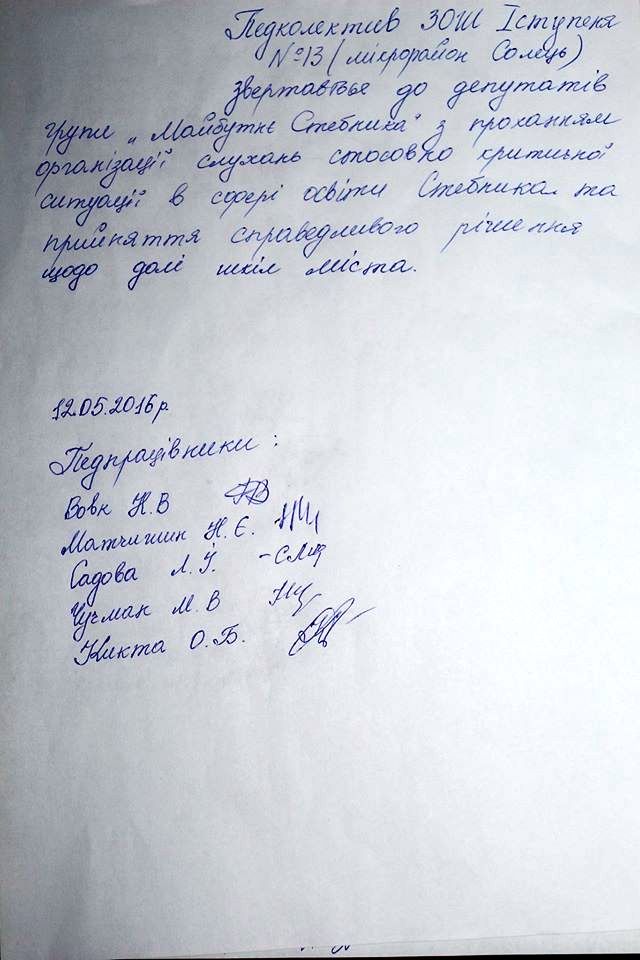 Педколектив ЗОШ І ступеня
№13 (мікрорайон Солець)
звертається до депутатів
групи „Майбутнє Стебника" з проханням
організації слухань стосовно критичної
ситуації в сфері освіти Стебника та
прийняття справедливого рішення
щодо долі шкіл міста.
12.05.2016р.
Педпрацівники:
Вовк Н.В
Матчишин Н.Є.
Садова Л.Й.
Чучман М.В
Кикта О.Б.